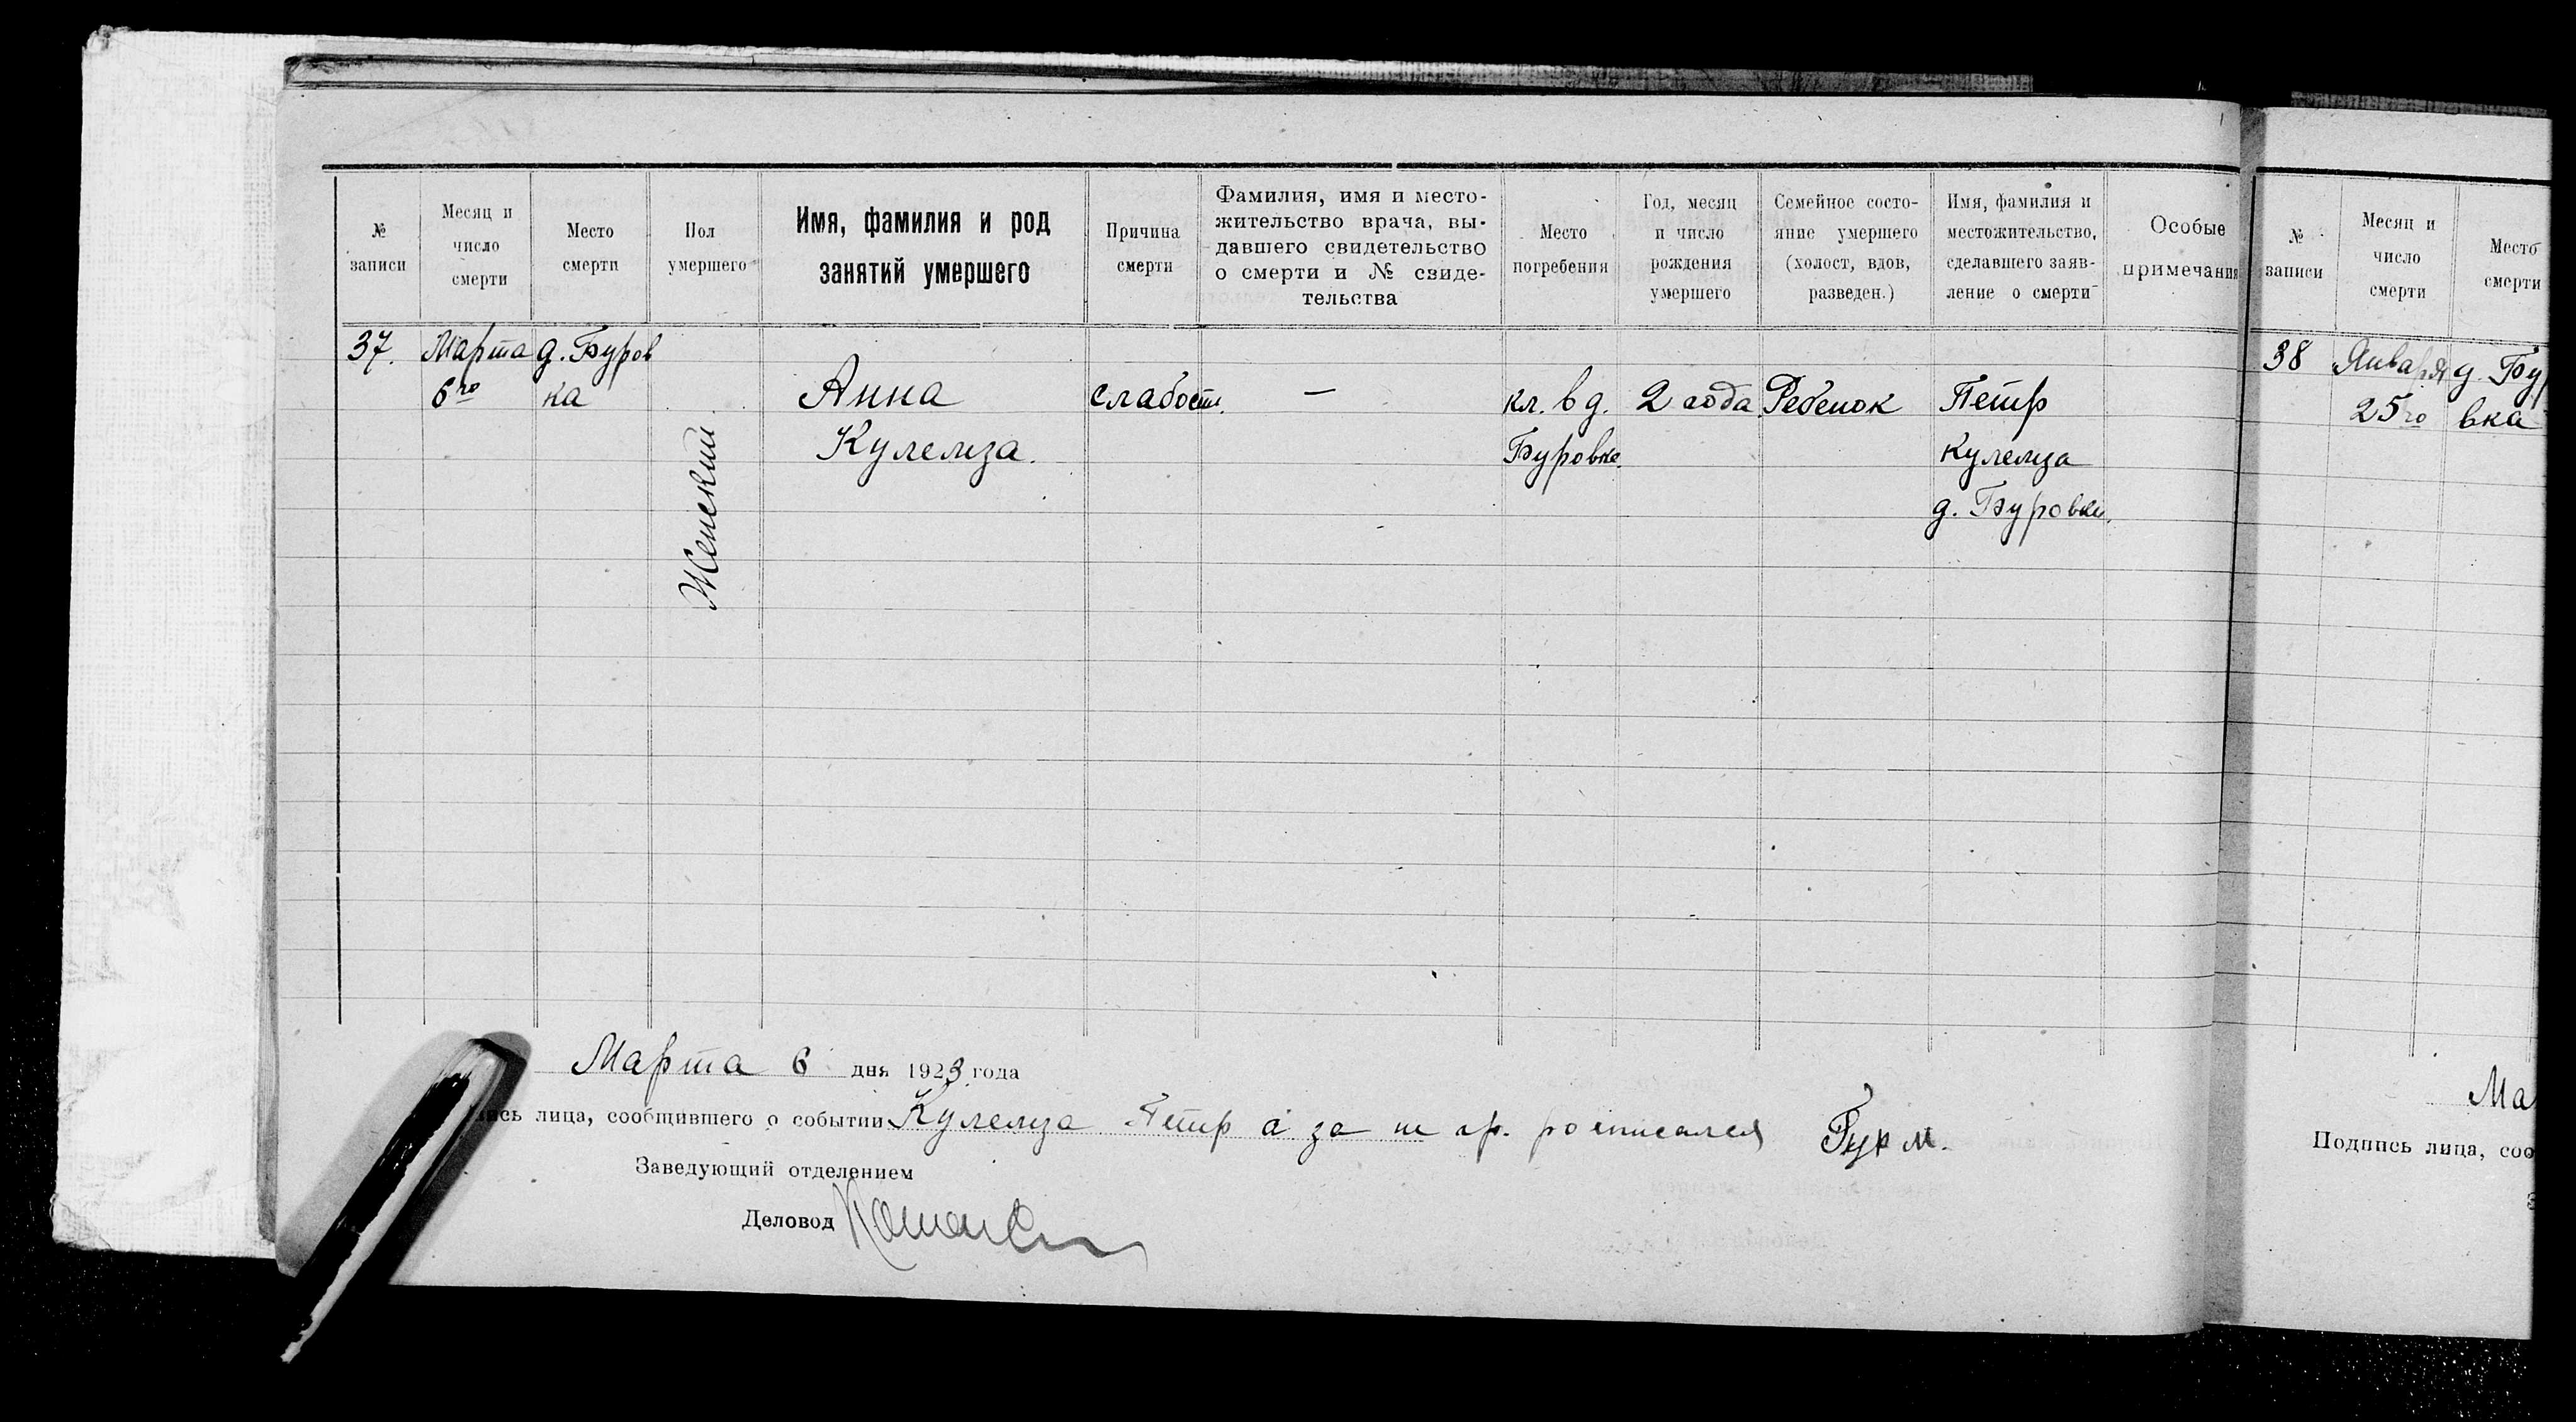 № записи
Месяц и число смерти
Место смерти
Пол умершего
Имя, фамилия и род занятий умершего
Причина смерти
Фамилия, имя и место-
жительство врача, вы-
давшего свидетельство
о смерти и № свиде-
тельства
Место погребения
Год, месяц и число рождения умершего
Семейное состо-
яние умершего
(холост, вдов,
разведен.)
Имя, фамилия и
местожительство,
сделавшего заяв-
ление о смерти
Особые примечания
37.
Марта
6го
д. Буров
ка
Женский
Анна
Кулемза.
слабость.
—
кл. в д.
Буровке.
2 года
Ребенок
Петр
Кулемза
д. Буровки.
Марта 6 дня 1923 года
лица, сообщившего о событии Кулемза Петр а за не гр. росписался
Заведующий отделением
Деловод
№ записи
Месяц и число смерти
Место смерти
38
Января
25го
д. Бу
вка
Ма
Подпись лица, соо